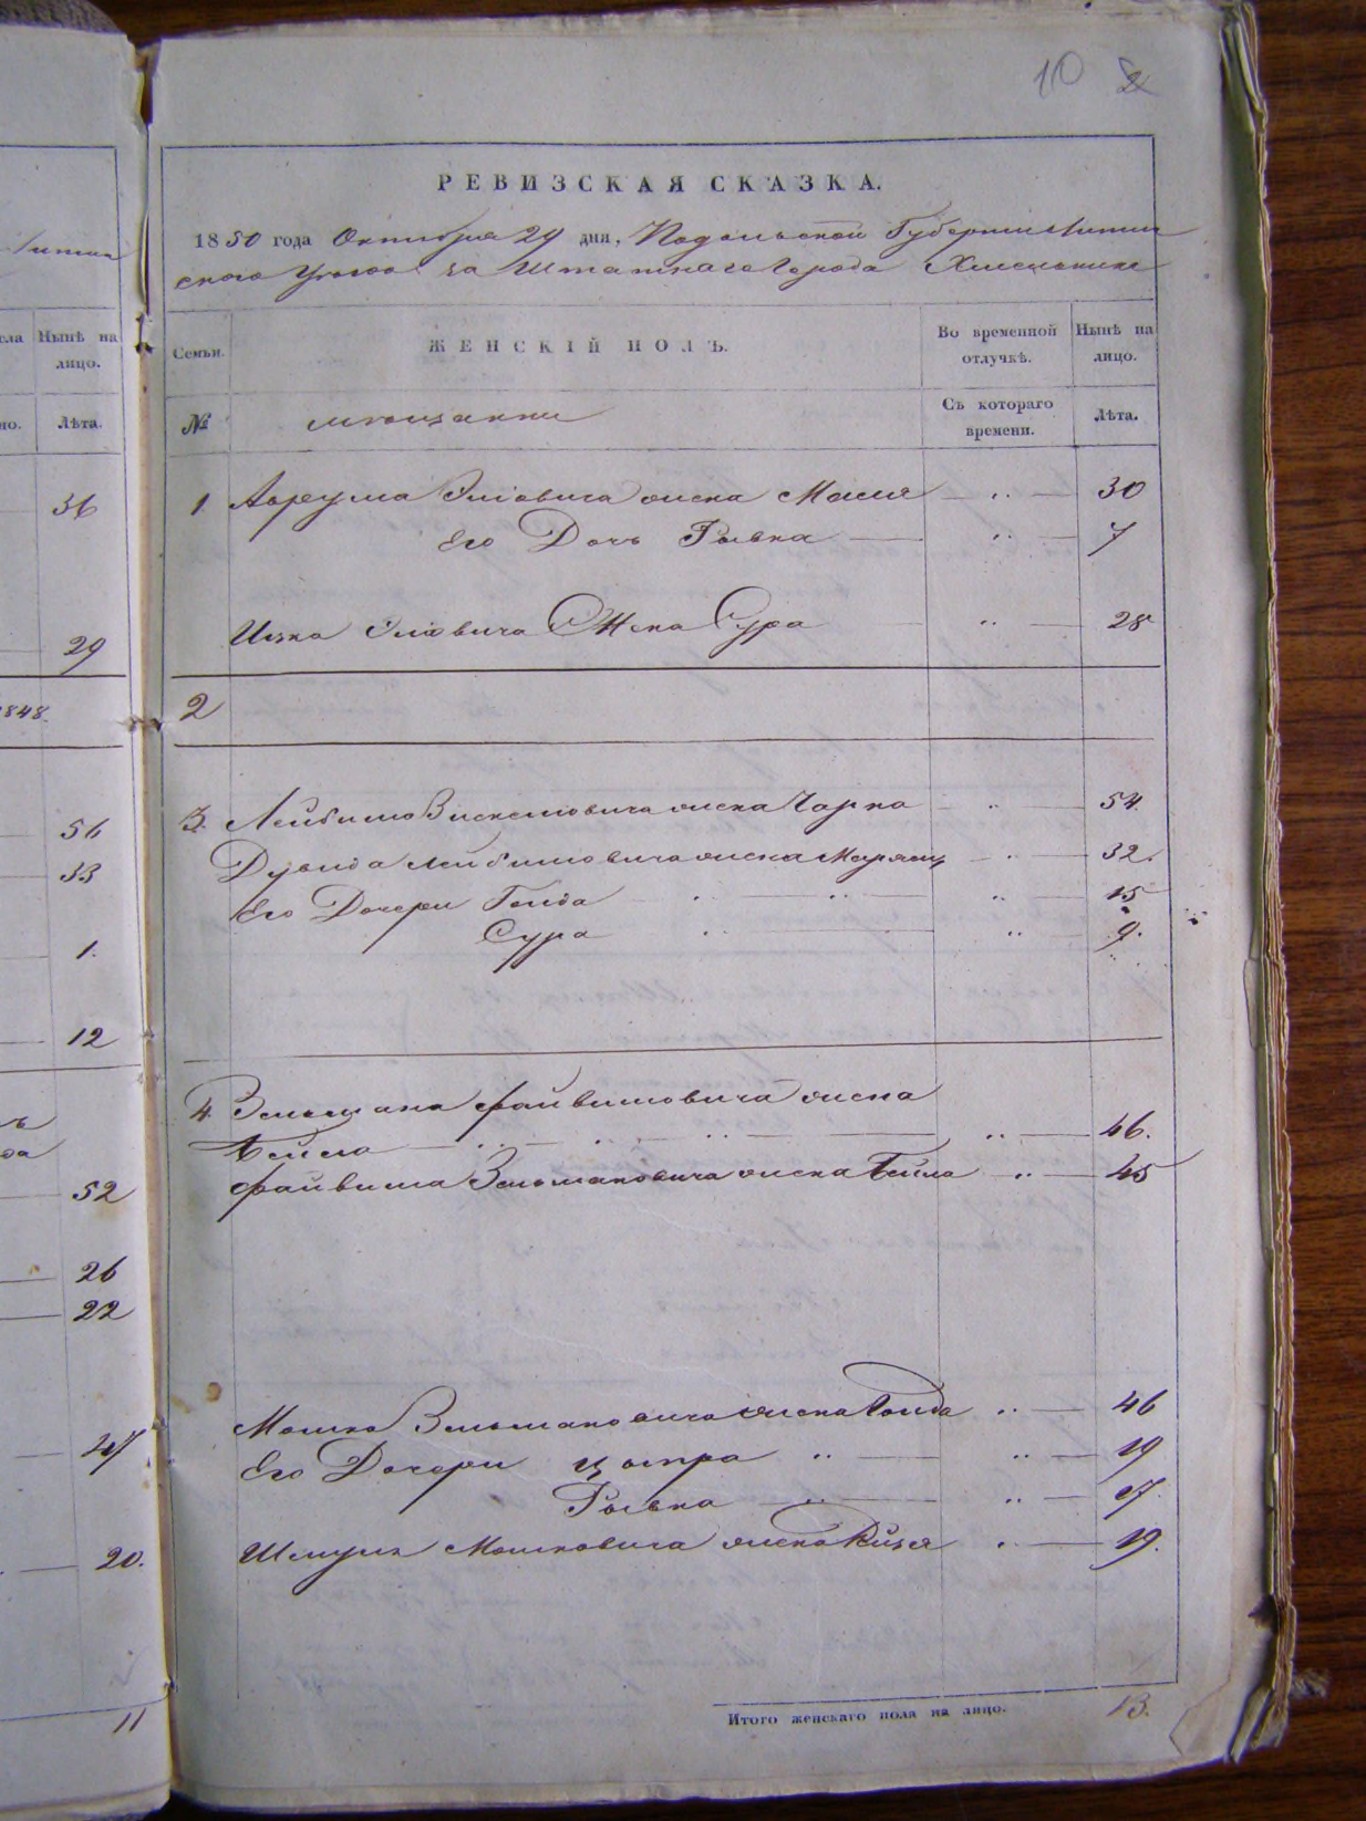 10 2
РЕВИЗСКАЯ СКАЗКА.
1850 года Октября 29 дня, Подольской Губернии Литин
ского Уезда за Штатнаго Города Хмельника
Семьи. ЖЕНСКІЙ ПОЛЪ. Во временной отлучкѣ. Нынѣ на лицо.
№ мещанки Съ котораго времени. Лѣта.
1 Аврума Элiовича жена Масия 30
Его Дочь Рывка 7
Ицка Элiовича Жена Сура 28
2
3. Лейбиша жена Чарна 54.
Дувида Лейбишовича жена Марьям 32.
Его Дочери Голда 15
Сура 9.
4. Зельмана Файвишовича жена
Бейла 46.
Файвиша Зельмановича жена Бейла 45
Мошка Зельмановича жена Голда 46
Его Дочери Цыпра 19
Рывка 17.
Шмуля Мошковича жена Хайя 19.
Итого женскаго пола на лицо. 13.
Литин
Нынѣ на
лицо.
Лѣта.
36
29
1848.
56
33
1.
12
52
26
22
47
20.
11